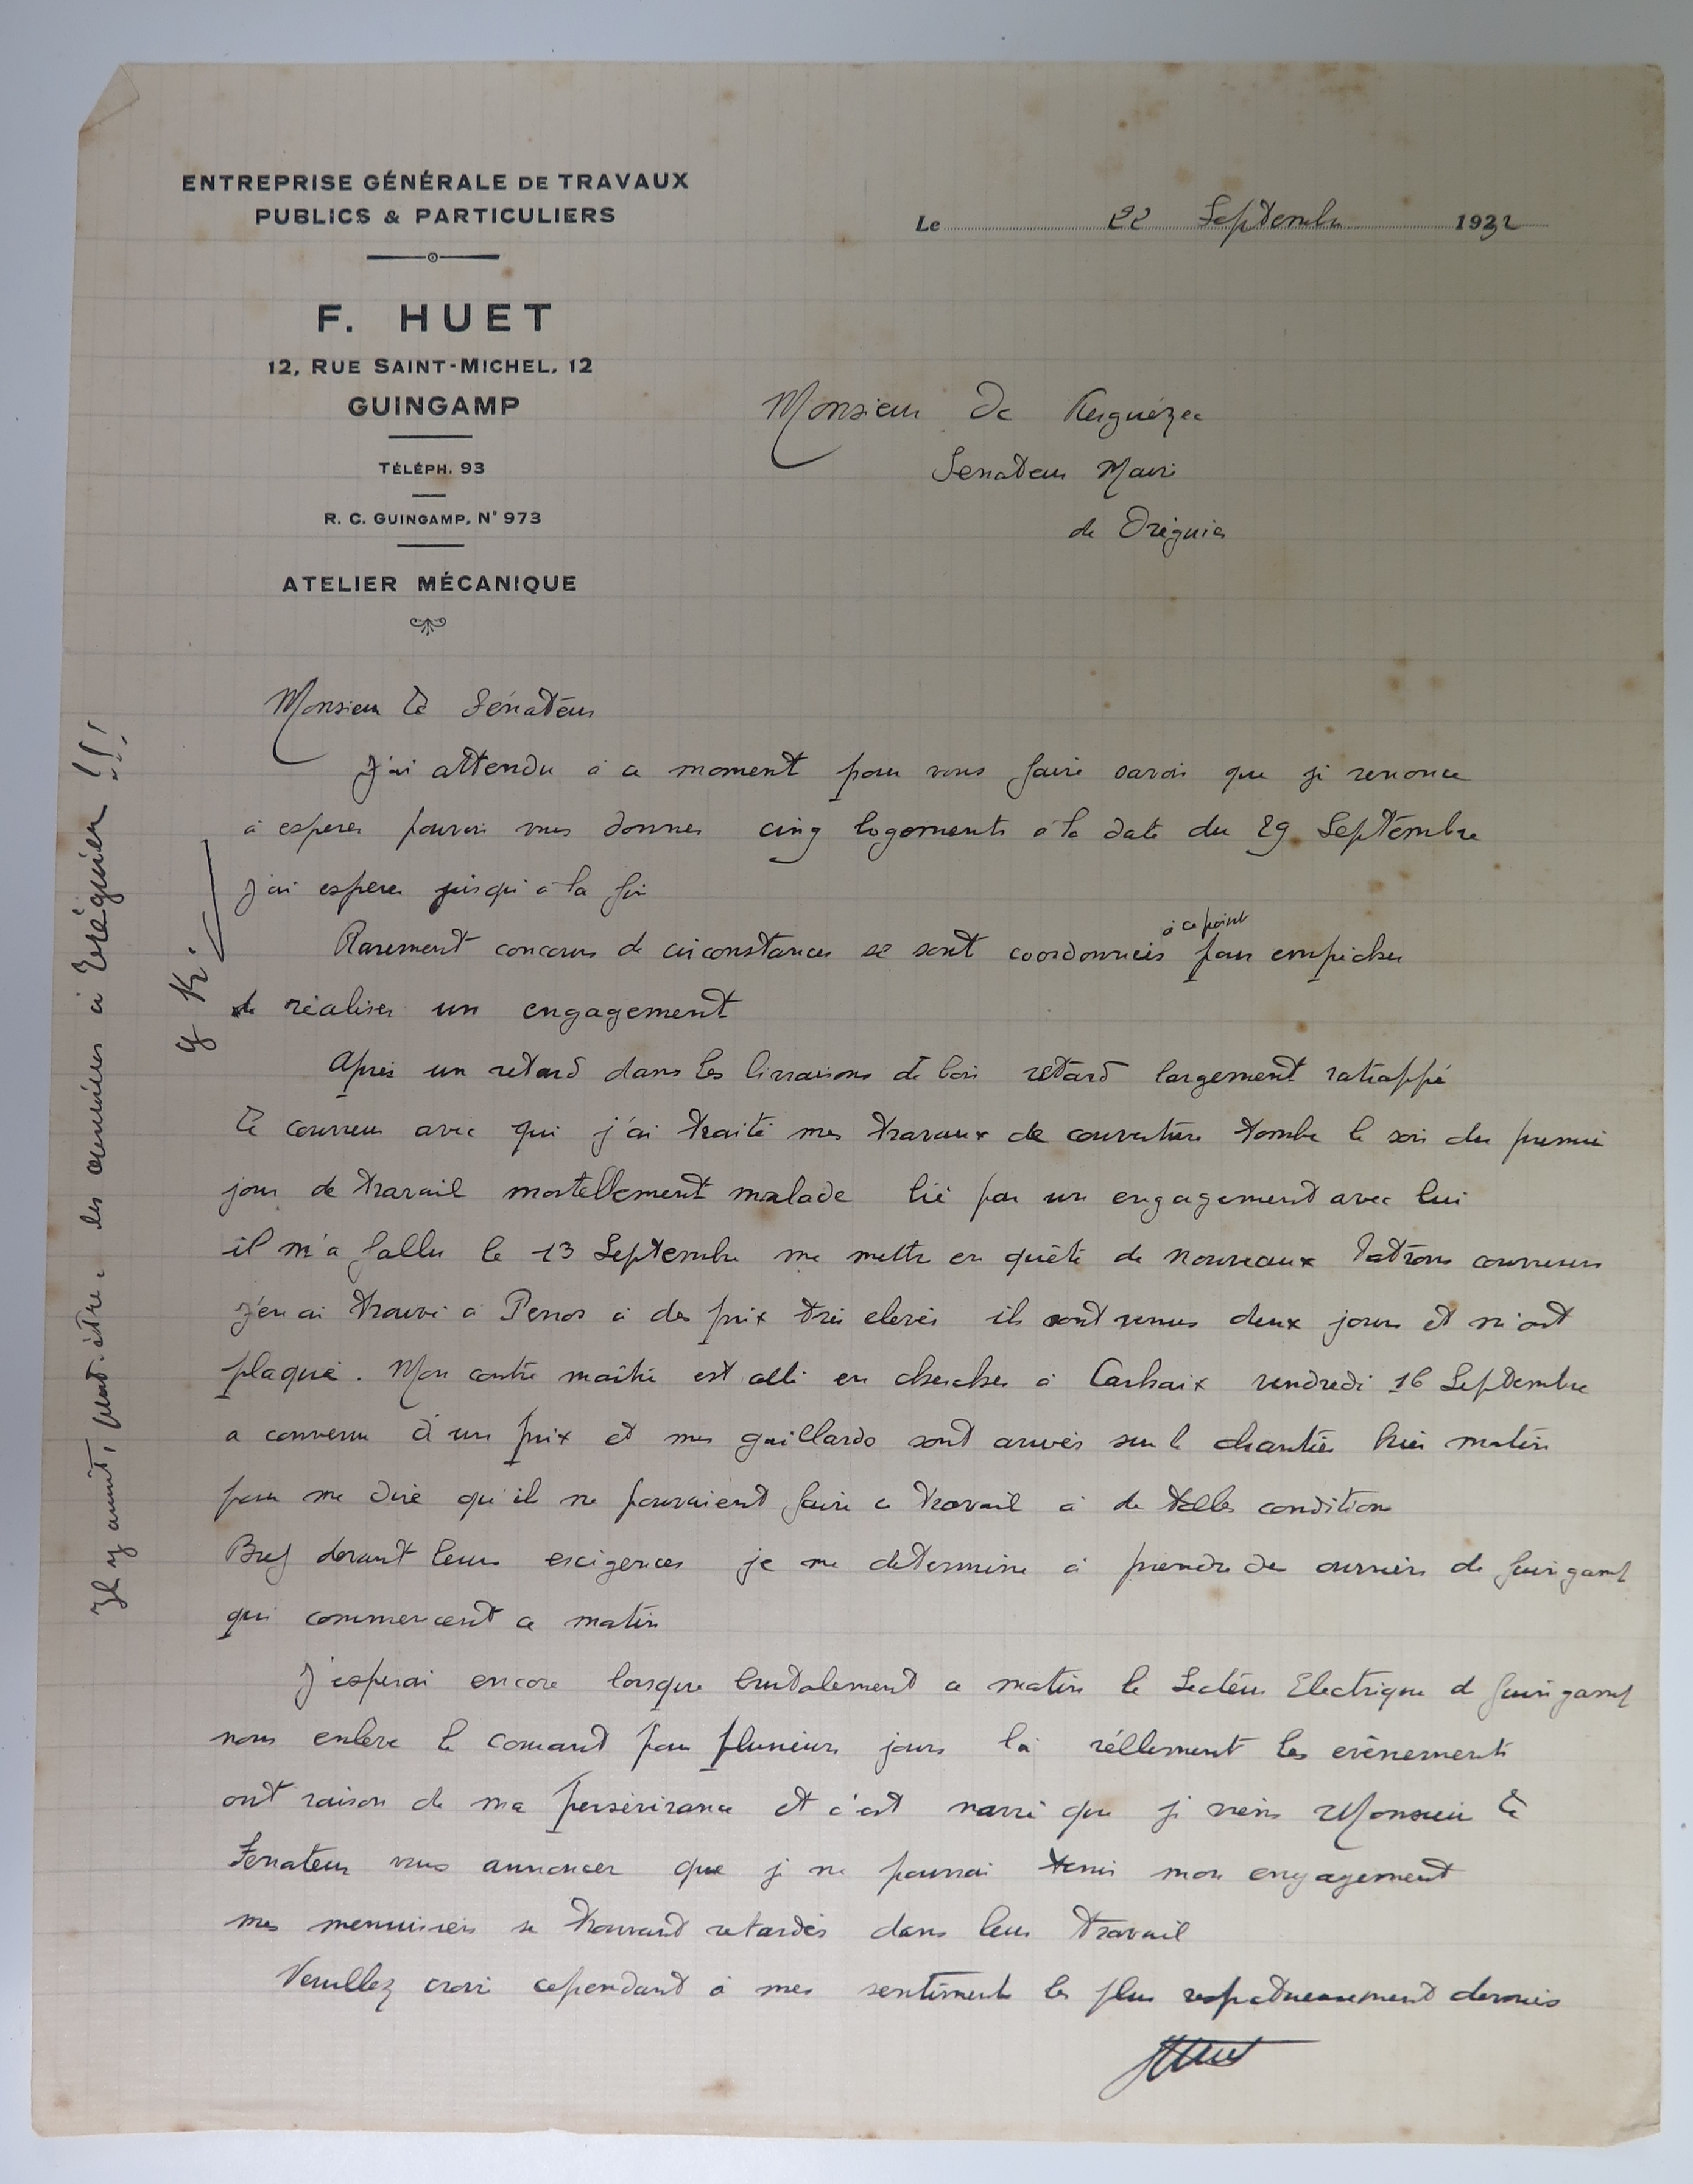 ENTREPRISE GÉNÉRALE DE TRAVAUX
PUBLICS & PARTICULIERS
F. HUET
12, RUE SAINT-MICHEL, 12
GUINGAMP
TÉLÉPH. 93
R. C. GUINGAMP, N° 973
ATELIER MÉCANIQUE
Le 22 Septembre 1932
Monsieur De Kerguézec
Senateur Maire
de Tréguier
Monsieur Le Sénateur
J'ai attendu à ce moment pour vous faire savoir que je renonce
à esperer pouvoir vous donner cinq logements à la date du 29 Septembre
J'ai esperer jusqu'à la fin
Rarement concours de circonstances se sont coordonnées à ce point pour empêcher
de réaliser un engagement
Après un retard dans les livraisons de bois retard largement ratrappé
Le couvreur avec qui j'ai traité mes travaux de couverture tombe le soir du premier
jour de travail mortellement malade lié par un engagement avec lui
il m'a fallu le 13 Septembre me mettre en quête de nouveaux Patrons couvreurs
J'en ai trouvé à Perros à des prix très elevés ils sont venus deux jours et m'ont
plaqué. Mon contre maître est allé en chercher à Carhaix vendredi 16 Septembre
a convenu d'un prix et mes gaillards sont arrivés sur le chantier hier matin
pour me dire qu'il ne pouvaient faire ce travail à de telles condition
Bref devant leurs exigences je me determine à prendre des ouvriers de Guingamp
qui commencent ce matin
J'esperai encore lorsque brutalement ce matin le Secteur Electrique de Guingamp
nous enlève le courant pour plusieurs jours là réllement les evènements
ont raison de ma persévérance et c'est navré que je viens Monsieur Le
Senateur vous annoncer que je ne pourrai tenir mon engagement
mes menuisiers se trouvant retardés dans leur travail
Veuillez croire cependant à mes sentiments les plus respectueusement devoués
Huet
Il y aurait, peut-être, les ouvrières à Tréguier !!!
g K.